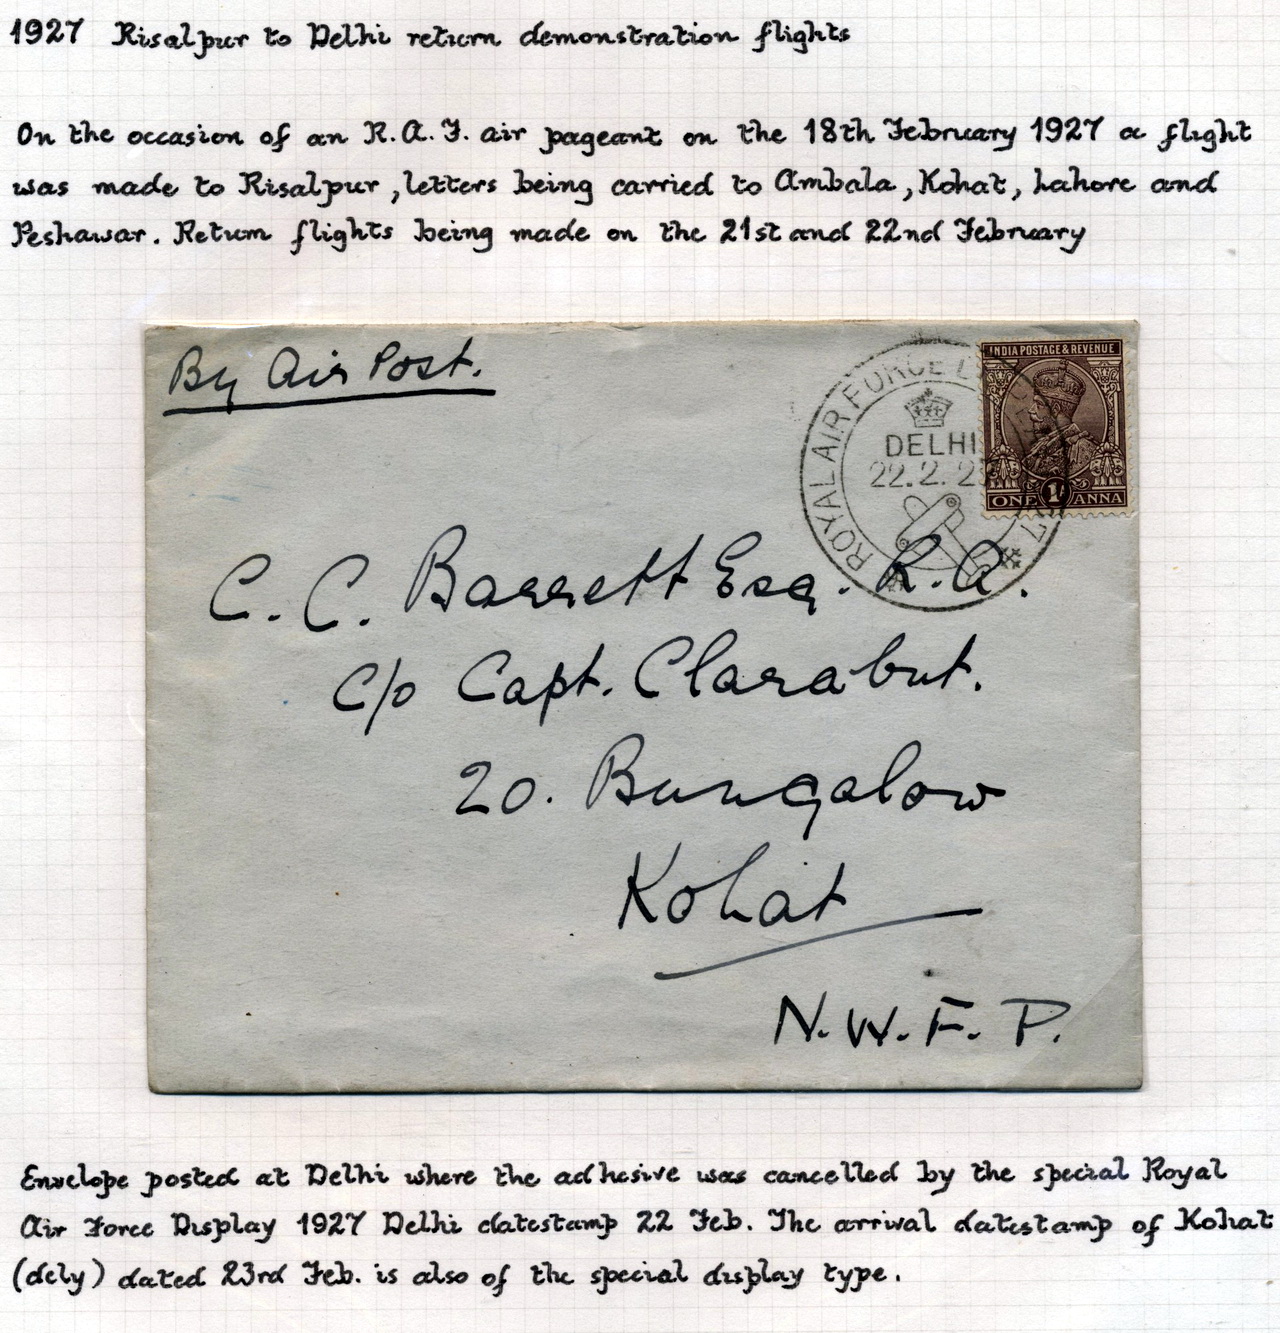 1927 Risalpur to Delhi return demonstration flights
On the occasion of an R.A.F. air pageant on the 18th February 1927 a flight
was made to Risalpur, letters being carried to Ambala, Kohat, Lahore and
Peshawar. Return flights being made on the 21st and 22nd February
By Air Post.
INDIA POSTAGE & REVENUE
ONE 1A ANNA
ROYAL AIR FORCE
DELHI
22.2.
C. C. Barrett Esq. R.A.
c/o Capt. Clarabut.
20. Bungalow
Kohat
N.W.F.P.
Envelope posted at Delhi where the adhesive was cancelled by the special Royal
Air Force Display 1927 Delhi datestamp 22 Feb. The arrival datestamp of Kohat
(dely) dated 23rd Feb. is also of the special display type.